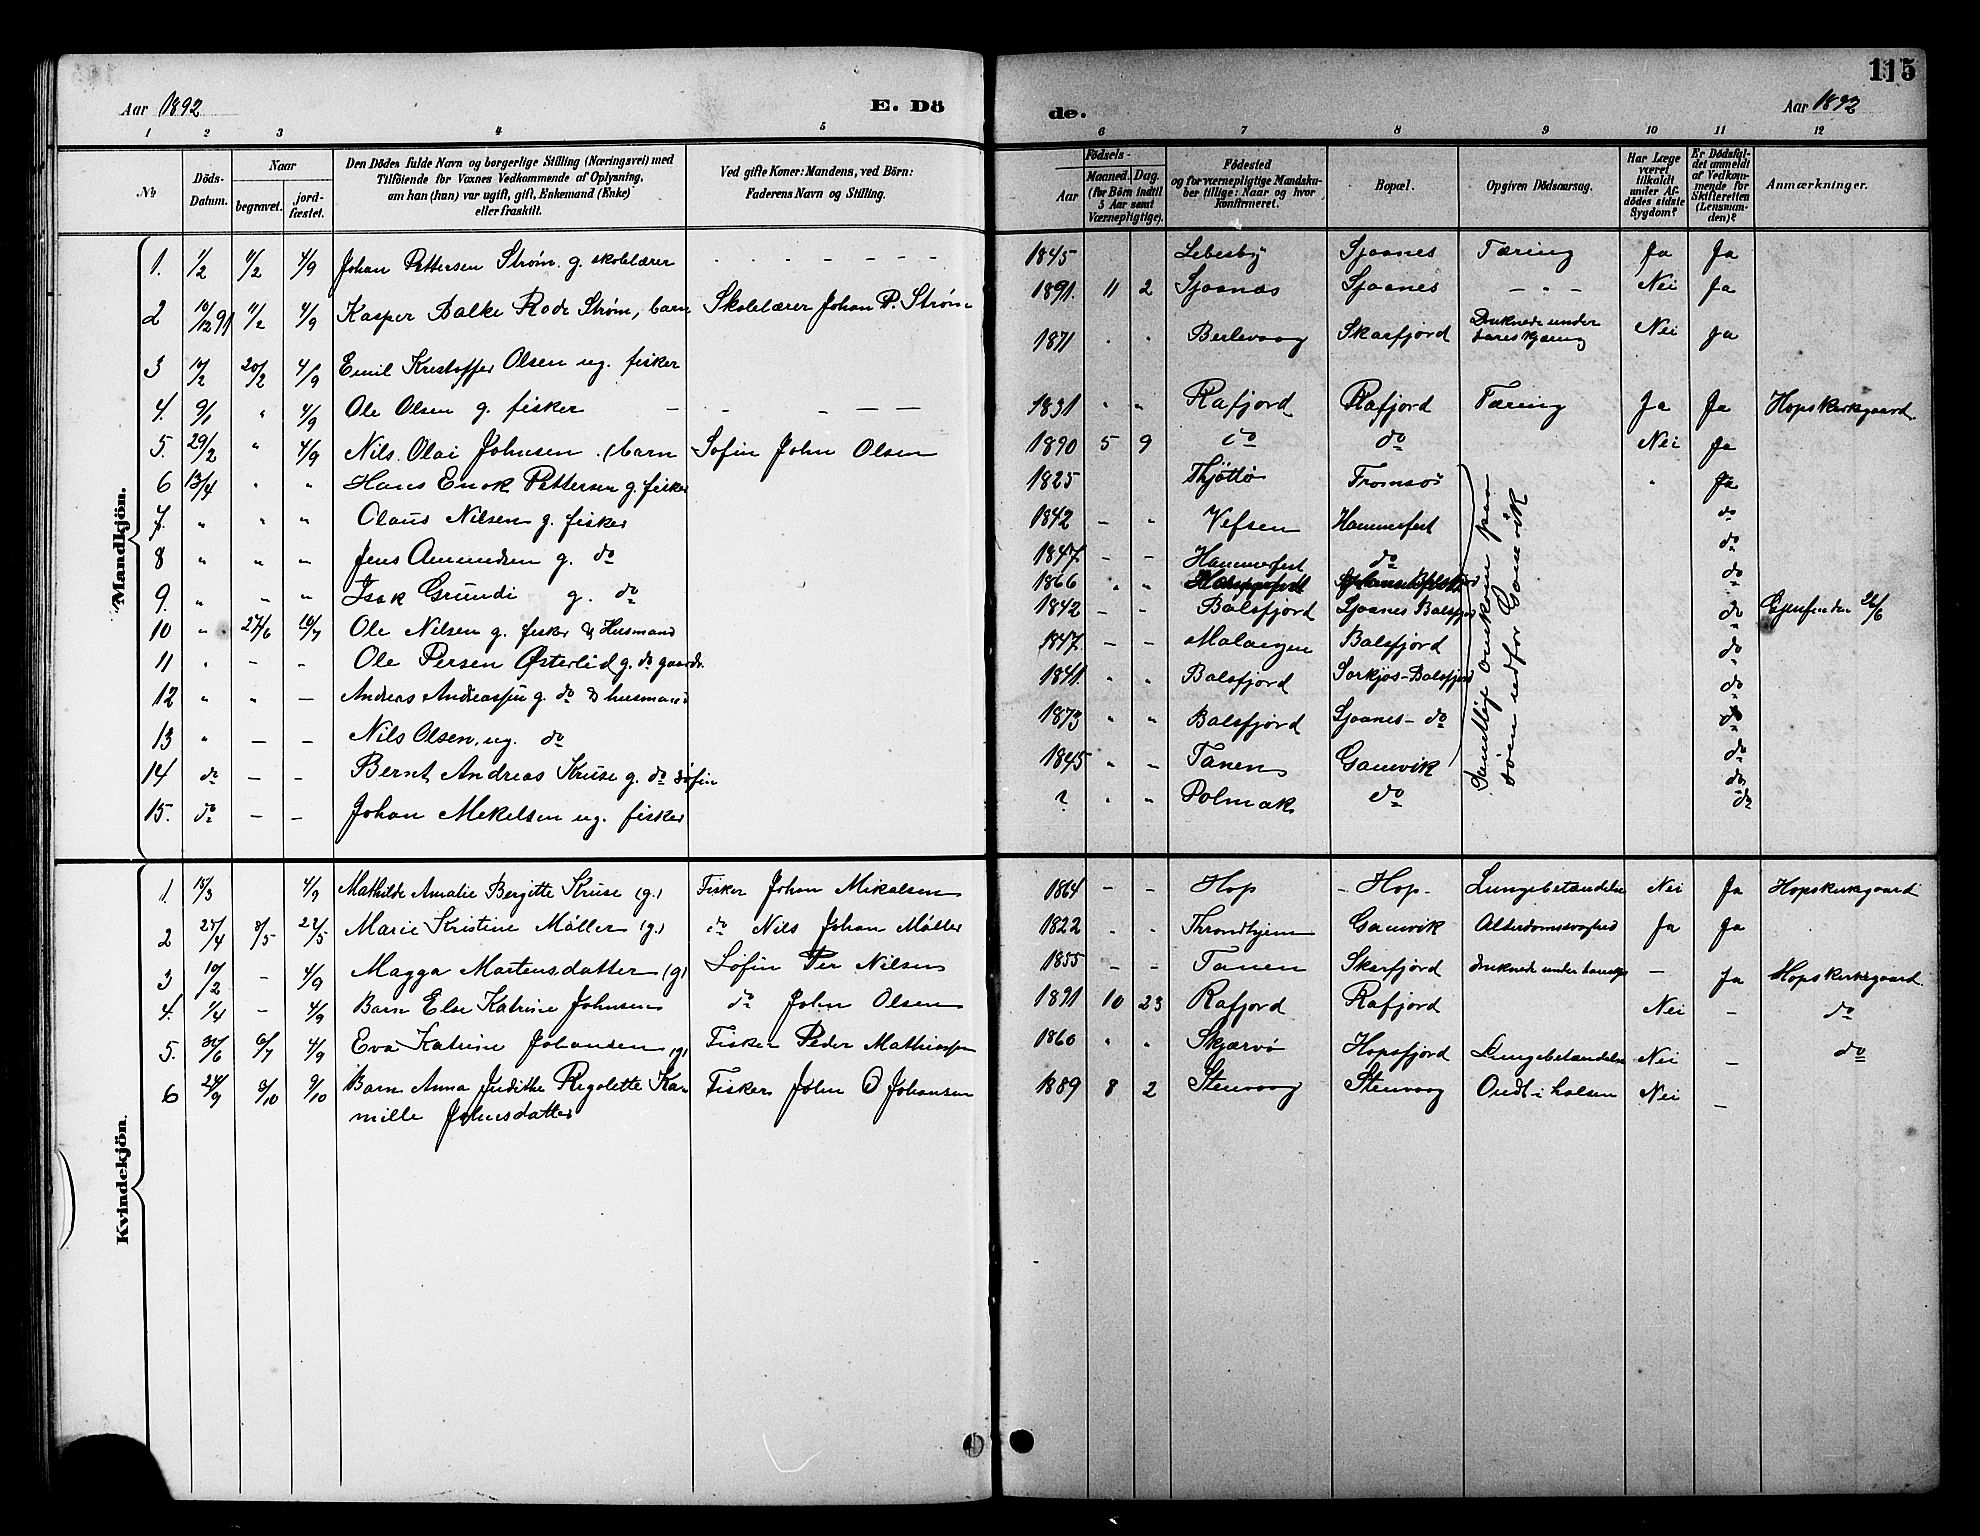 115
Aar 1892
E. Dö
de.
Aar 1892
1 2 3 4 5 6 7 8 9 10 11 12
No
Döds-Datum.
Naar
begravet.
jordfæstet.
Den Dödes fulde Navn og borgerlige Stilling (Næringsvei) med Tilföiende for Voxnes Vedkommende af Oplysning, om han (hun) var ugift, gift, Enkemand (Enke) eller fraskilt.
Ved gifte Koner: Mandens, ved Börn: Faderens Navn og Stilling.
Födsels-
Aar
Maaned. Dag. (for Börn indtil 5 Aar samt Værnepligtige).
Födested og for værnepligtige Mandskaber tillige: Naar og hvor konfirmeret.
Bopæl.
Opgiven Dödsaarsag.
Har Læge været tilkaldt under Afdödes sidste Sygdom?
Er Dödsfaldet anmeldt af Vedkommende for Skifteretten (Lensmanden)?
Anmærkninger.
Mandkjön.
1. 1/2 11/2 4/9 Johan Pettersen Strøm. g. skolelærer 1845 Lebesby Sjaanes Tæring Ja Ja
2 10/12 91 11/2 4/9 Kasper Balke Rode Strøm, barn Skolelærer Johan P. Strøm 1891. 11 2 Sjaanæs Sjaanes - " - Nei Ja
3 10/2 20/2 4/9 Emil Kristoffer Olsen ug. fisker 1871 " " Berlevaag Skarfjord Druknede under bareskjæring Nei Ja
4. 9/1 " 4/9 Ole Olsen g. fisker 1831 " " Rafjord Rafjord Tæring Ja Ja Hopskirkgaard.
5. 29/2 " 4/9 Nils Olai Johnsen. (barn Søfin John Olsen 1890 5 9 do do Nei Ja
6 13/4 " " Hans Enok Pettersen g. fisker 1825 Thjøttø Tromsø " Ja
7. " " " Olaus Nilsen g. fisker 1842 - " Vefsen Hammerfest do
8 " " " Jens Amundsen g. do 1847. - - Hammerfest do do
9. " " " Isak Grundi g. do 1866 " " do
10 " 27/6 10/7 Ole Nilsen g. fisker & Husmand 1842 - - Balsfjord Sjaanes Balsfjord do Gjenfunden 26/6
11 " - - Ole Persen Østerlid g. do gaardr. 1847. - - Malangen Balsfjord do
12 " " - Andreas Andreassen g. do & husmand 1841. " " Balsfjord Sørkjos-Balsfjord do
13 " - - Nils Olsen, ug. do 1873 " " Balsfjord Sjaanes- do do
14 do - - Bernt Andreas Kruse g. do søfin 1845 " " Tanen Gamvik do
15. do - - Johan Mekelsen ug. fisker ? " " Polmak do do
do
Samtlige omkom paa
søen udfor Gamvik
Kvindekjön.
1. 15/3 4/9 Mathilde Amalie Bergitte Kruse (g.) Fisker Johan Mikalsen 1864 - - Hop - Hop - Lungebetændelse Nei Ja Hopskirkgaard
2 27/4 8/5 22/5 Marie Kristine Møller (g.) do Nils Johan Møller 1822 " " Throndhjem Gamvik Alderdomssvaghed Ja Ja
3 10/2 - 4/9 Magga Mortensdatter (g) Søfin Per Nilsen 1855 - - Tanen Skarfjord druknede under baresk. - Ja Hopskirkegaard.
4. 1/4 - 4/9 Barn Else Katrine Johnsen do John Olsen 1891 10 23 Rafjord Rafjord Nei - do
5. 30/6 6/7 4/9 Eva Katrine Johansen (g) Fisker Peder Mathiassen 1860 " " Skjærvø Hopsfjord Lungebetændelse Nei - do
6 24/9 8/10 9/10 Barn Anna Judithe Rigolette Ka- Fisker John O Johansen 1889 8 2 Stenvaag Stenvaag Ondt i halsen Nei -
mille Johnsdatter